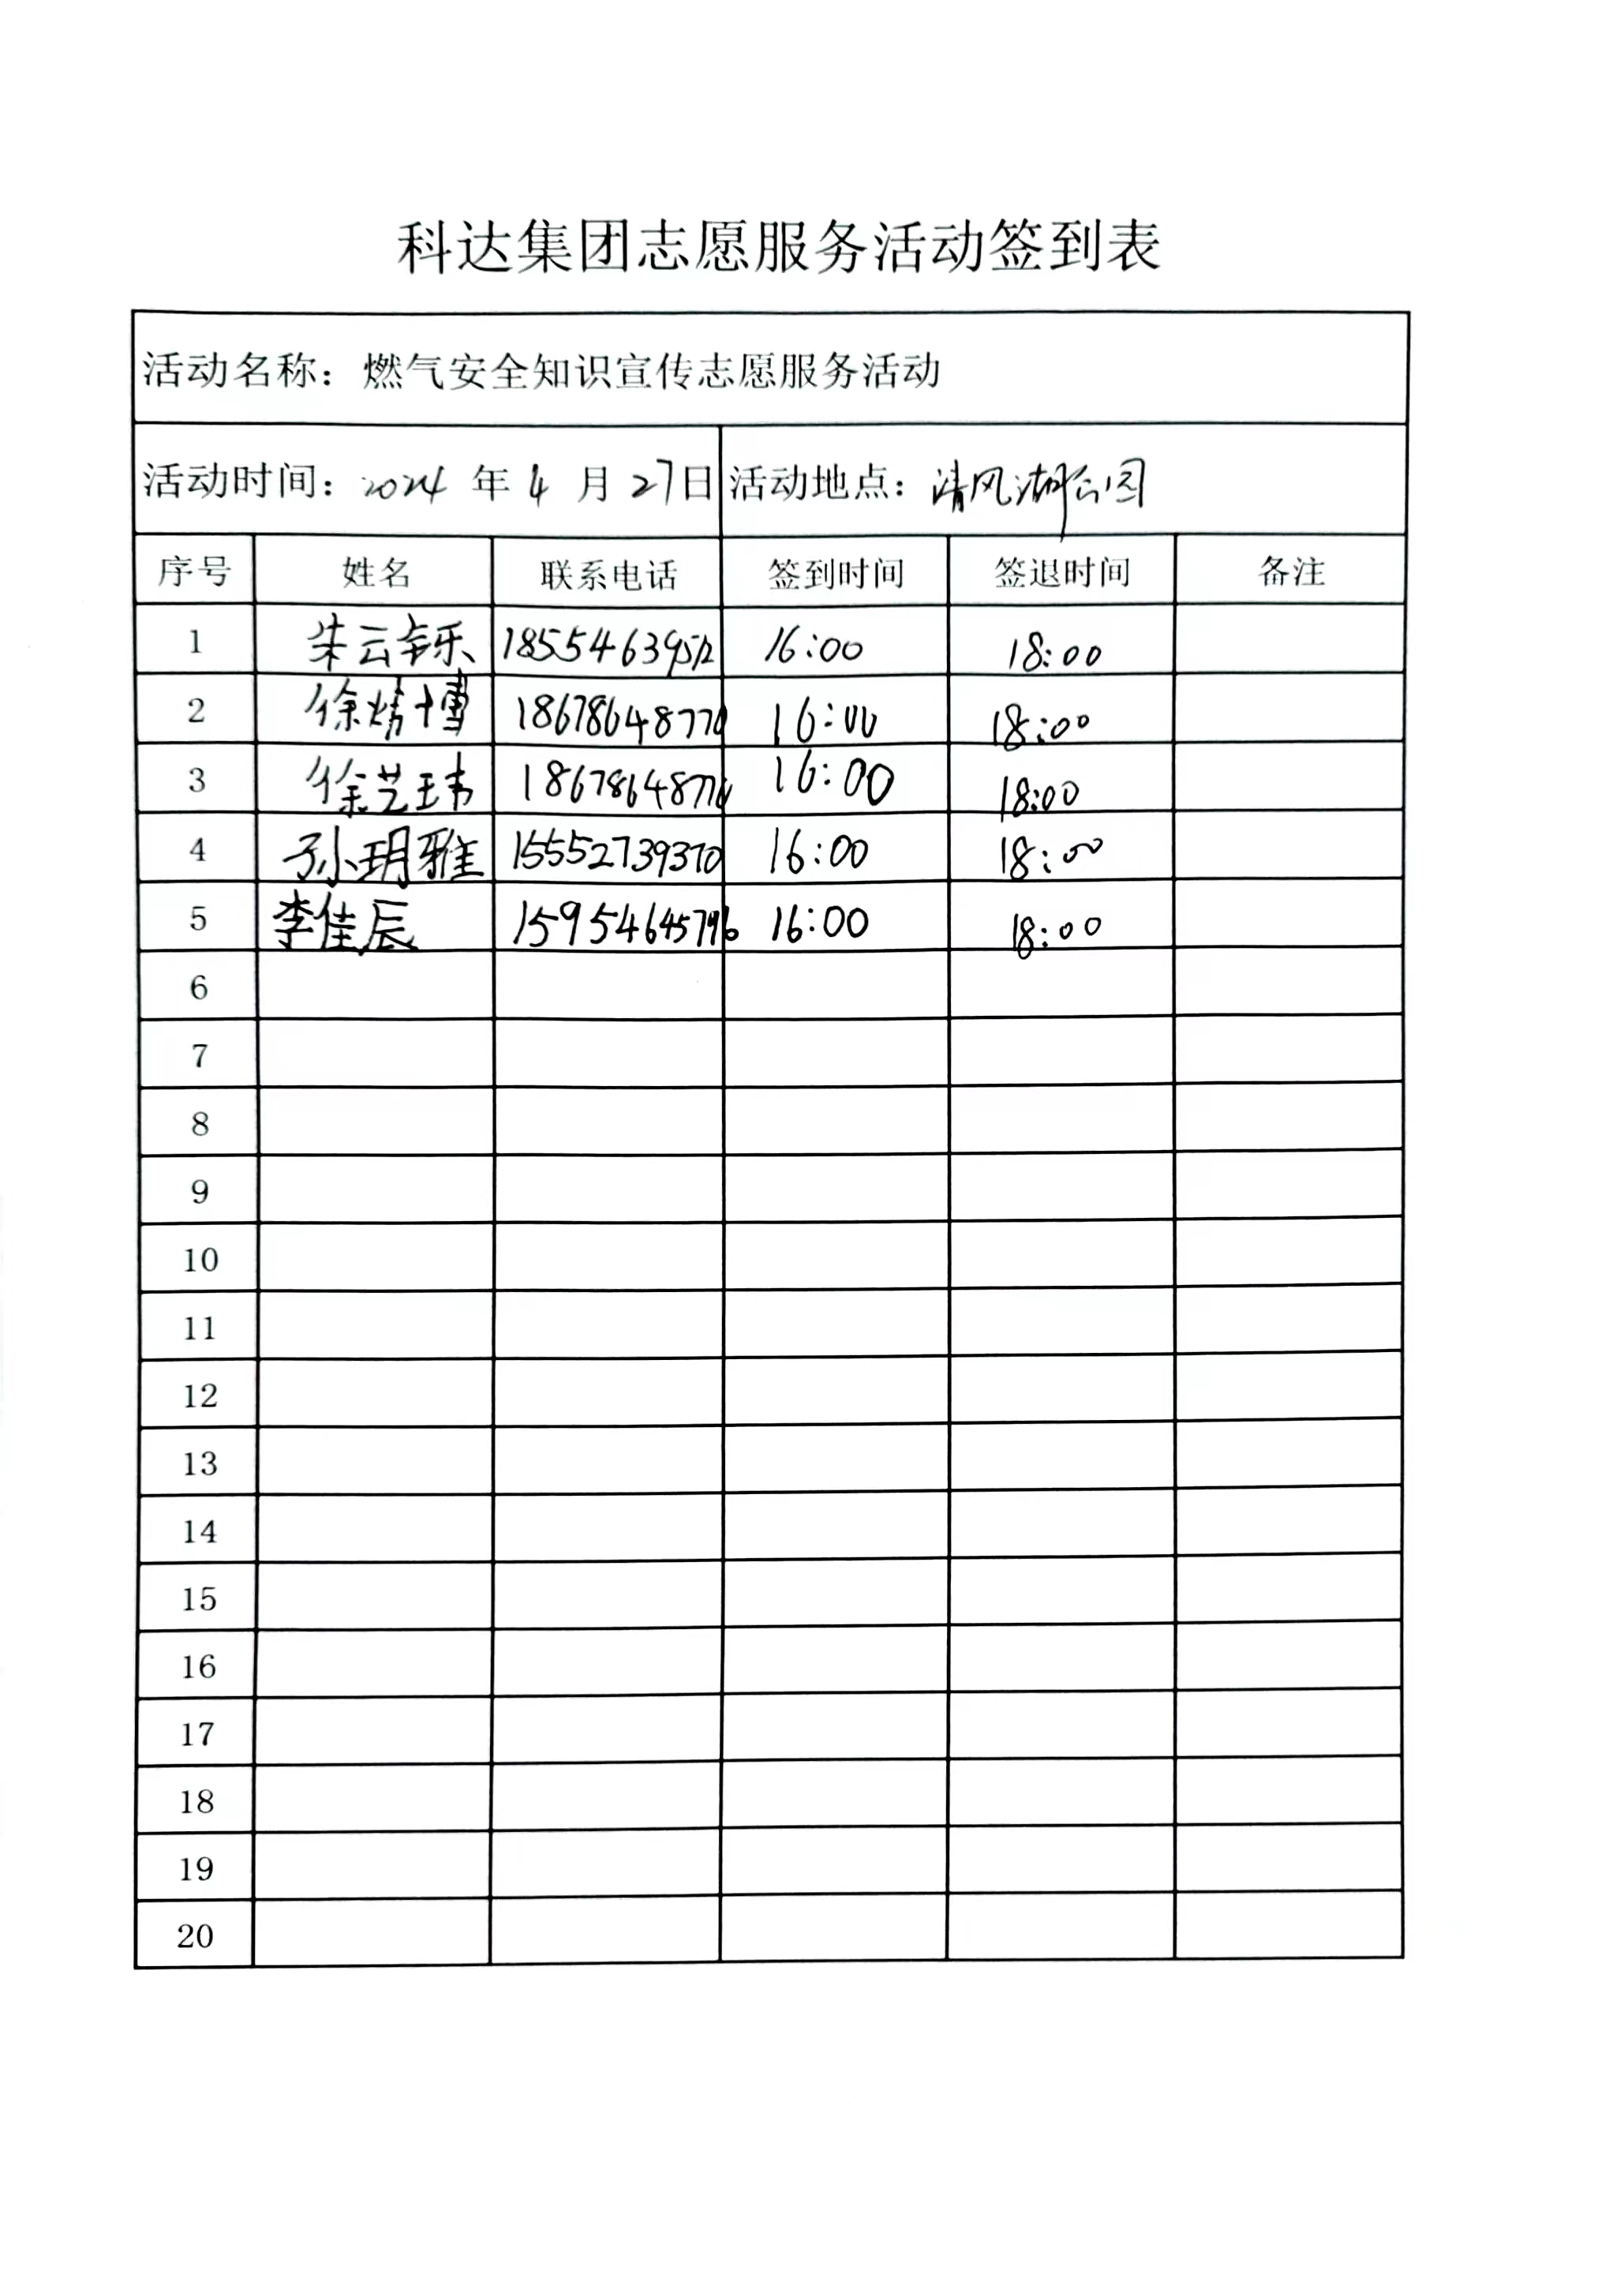 科达集团志愿服务活动签到表
活动名称：燃气安全知识宣传志愿服务活动
活动时间：2024 年 4 月 27日 活动地点：清风湖公园
序号 姓名 联系电话 签到时间 签退时间 备注
1 朱云 18554639512 16:00 18:00
2 徐 博 16:00 18:00
3 徐艺玮 16:00 18:00
4 孙玥雅 15552739370 16:00 18:00
5 李佳辰 16:00 18:00
6
7
8
9
10
11
12
13
14
15
16
17
18
19
20